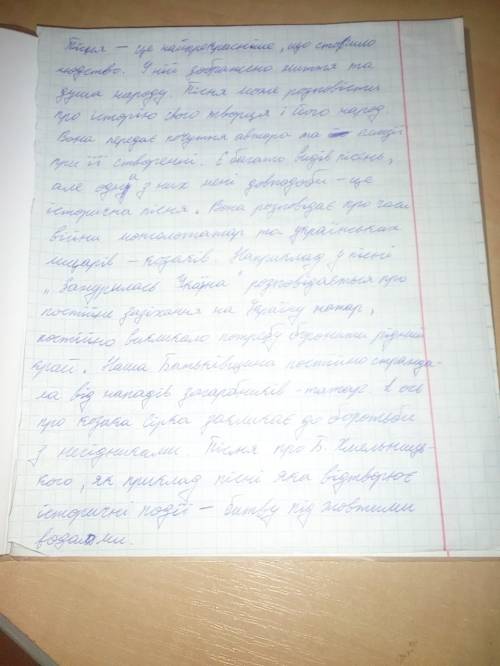 Пісня – це найпрекрасніше, що створило
людство. У ній зображено життя та
душа народу. Пісня може розповісти
про історію свого творця і його народ
Вона передає почуття автора та емоції
при її створенні. Є багато видів пісень,
але одна з них мені довподоби – це
історична пісня. Вона розповідає про часи
війни монголотатар та українських
лицарів – козаків. Наприклад у пісні
„Зажурилась Україна" розповідається про
постійне заїхання на Україну татар,
постійно викликало потребу боронити рідний
край. Наша Батьківщина постійно стражда-
ла від нападів загарбників – татар. А ось
про козака Сірка закликає до боротьби
з несідниками. Пісня про Б. Хмельниць-
кого, як приклад пісні яка відтворює
історичні події – битву під жовтими
водами.